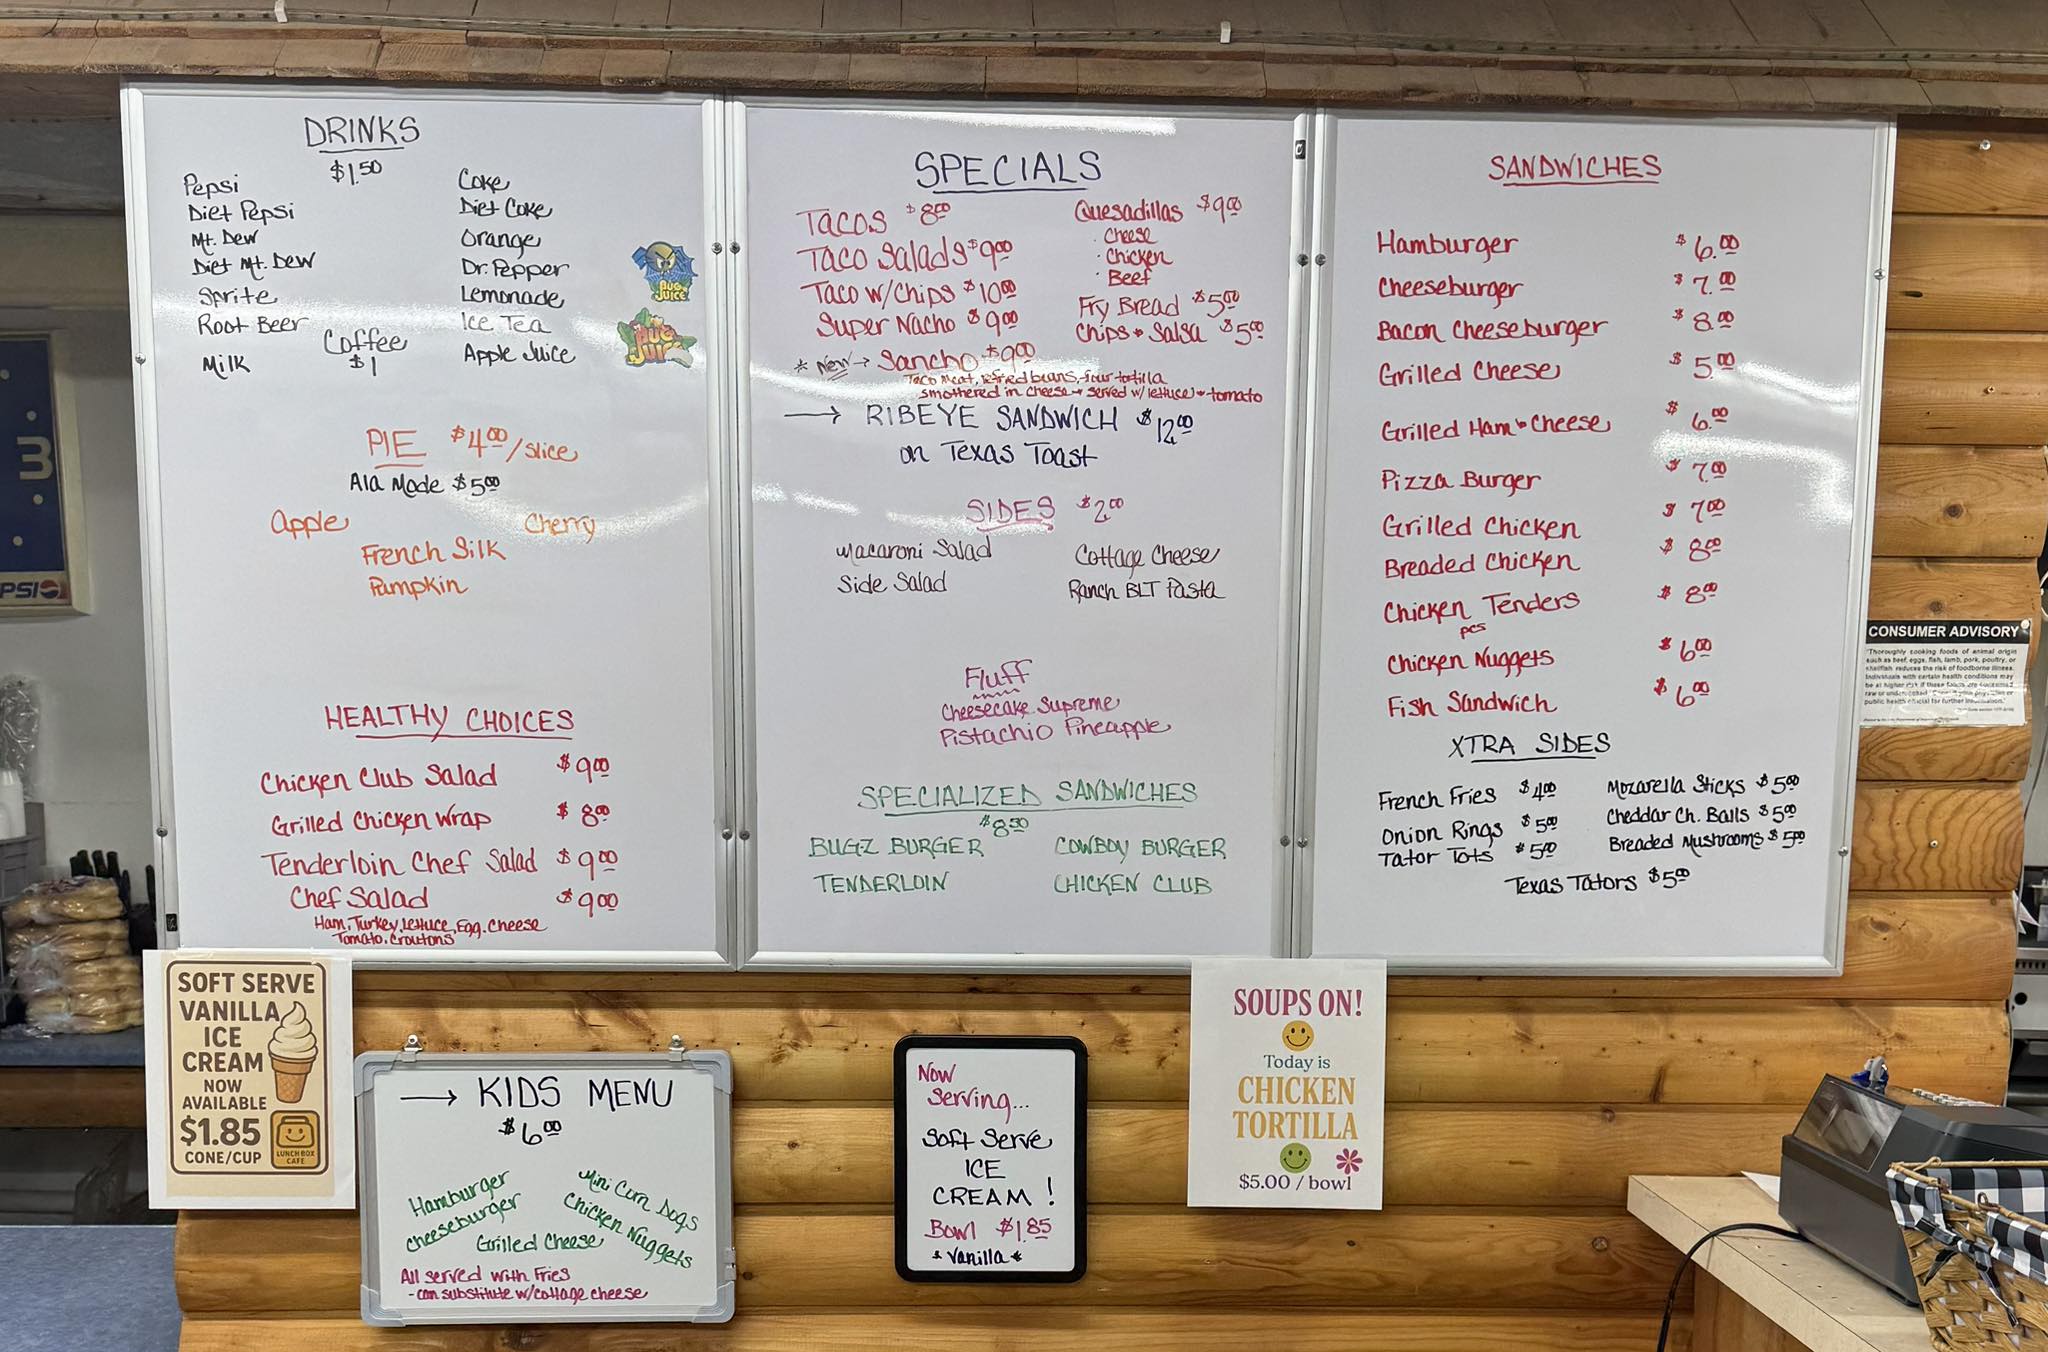 DRINKS
$1.50
Pepsi
Diet Pepsi
Mt. Dew
Diet Mt. Dew
Sprite
Root Beer
Milk
Coffee
$1
Coke
Diet Coke
Orange
Dr. Pepper
Lemonade
Ice Tea
Apple Juice
BUG
JUICE
BUG
JUICE
PIE $4.00/slice
Ala Mode $5.00
Apple
Cherry
French Silk
Pumpkin
HEALTHY CHOICES
Chicken Club Salad $9.00
Grilled Chicken Wrap $8.00
Tenderloin Chef Salad $9.00
Chef Salad $9.00
Ham, Turkey, Lettuce, Egg, Cheese
Tomato, Croutons
SPECIALS
Tacos $8.00
Taco Salads $9.00
Taco w/Chips $10.00
Super Nacho $9.00
Quesadillas $9.00
· Cheese
· Chicken
· Beef
Fry Bread $5.00
Chips & Salsa $5.00
* New → Sancho $9.00
Taco Meat, refried beans, flour tortilla
smothered in cheese & served w/ lettuce & tomato
→ RIBEYE SANDWICH $12.00
on Texas Toast
SIDES $2.00
Macaroni Salad
Side Salad
Cottage Cheese
Ranch BLT Pasta
Fluff
Cheesecake Supreme
Pistachio Pineapple
SPECIALIZED SANDWICHES
$8.50
BUGZ BURGER
TENDERLOIN
COWBOY BURGER
CHICKEN CLUB
SANDWICHES
Hamburger $6.00
Cheeseburger $7.00
Bacon Cheeseburger $8.00
Grilled Cheese $5.00
Grilled Ham & Cheese $6.00
Pizza Burger $7.00
Grilled Chicken $7.00
Breaded Chicken $8.00
Chicken Tenders $8.00
pcs
Chicken Nuggets $6.00
Fish Sandwich $6.00
XTRA SIDES
French Fries $4.00
Onion Rings $5.00
Tator Tots $5.00
Mozarella Sticks $5.00
Cheddar Ch. Balls $5.00
Breaded Mushrooms $5.00
Texas Tators $5.00
CONSUMER ADVISORY
"Thoroughly cooking foods of animal origin
such as beef, eggs, fish, lamb, pork, poultry, or
shellfish reduces the risk of foodborne illness.
Individuals with certain health conditions may
be at higher risk if these foods are consumed
raw or undercooked. Consult your physician or
public health official for further information."
3
PSI
SOFT SERVE
VANILLA
ICE
CREAM
NOW
AVAILABLE
$1.85
CONE/CUP
LUNCH BOX
CAFE
→ KIDS MENU
$6.00
Hamburger
Cheeseburger
Grilled Cheese
Mini Corn Dogs
Chicken Nuggets
All served with Fries
- can substitute w/cottage cheese
Now
Serving...
Soft Serve
ICE
CREAM!
Bowl $1.85
* Vanilla *
SOUPS ON!
Today is
CHICKEN
TORTILLA
$5.00 / bowl